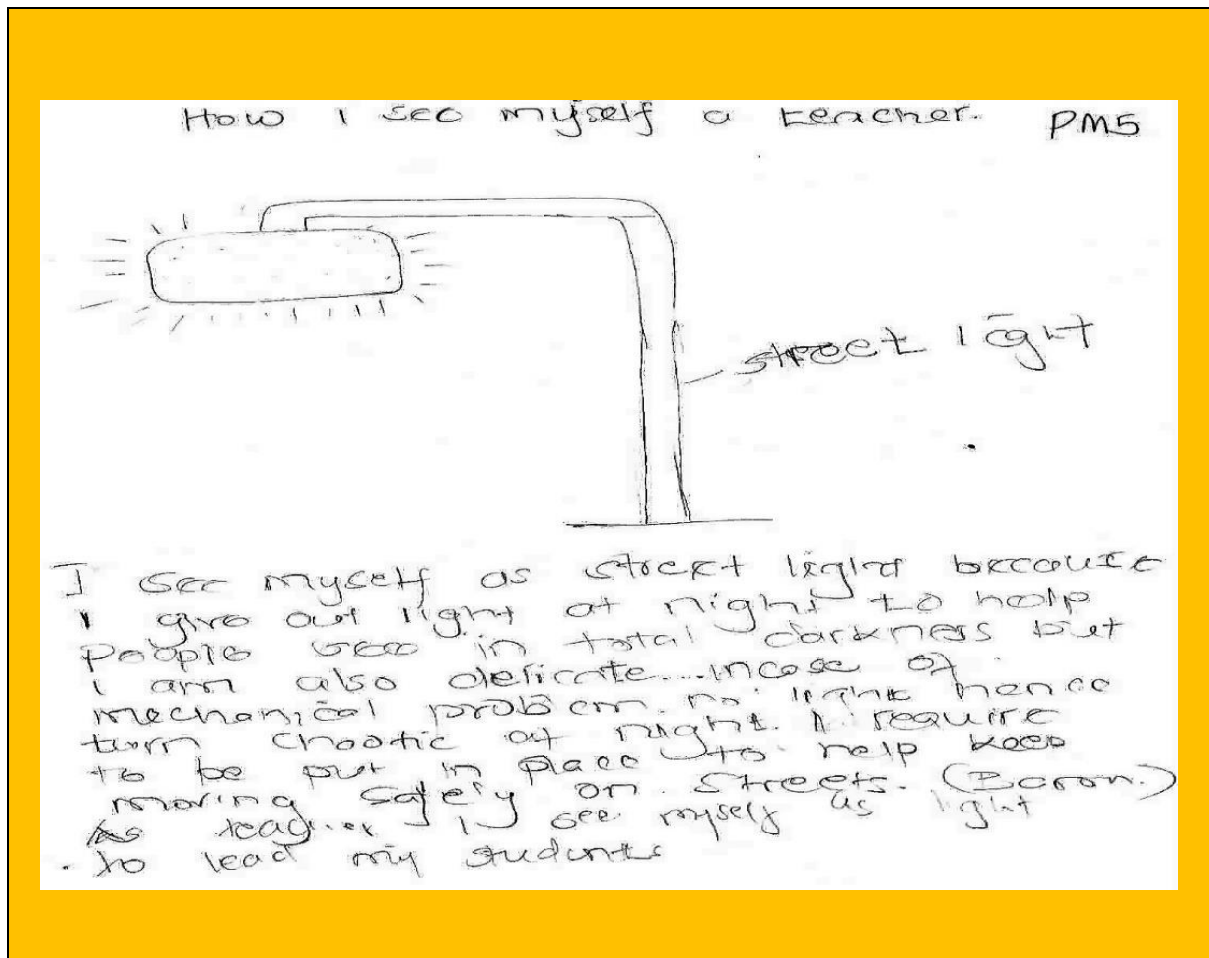 How I see myself a teacher. PM5
street light
I see myself as street light because
I give out light at night to help
people see in total darkness but
I am also delicate...incase of
mechanical problem. no light hence
turn chaotic at night. I require
to be put in place to help keep
moving safely on streets. (Baron.)
As teacher I see myself as light
to lead my students